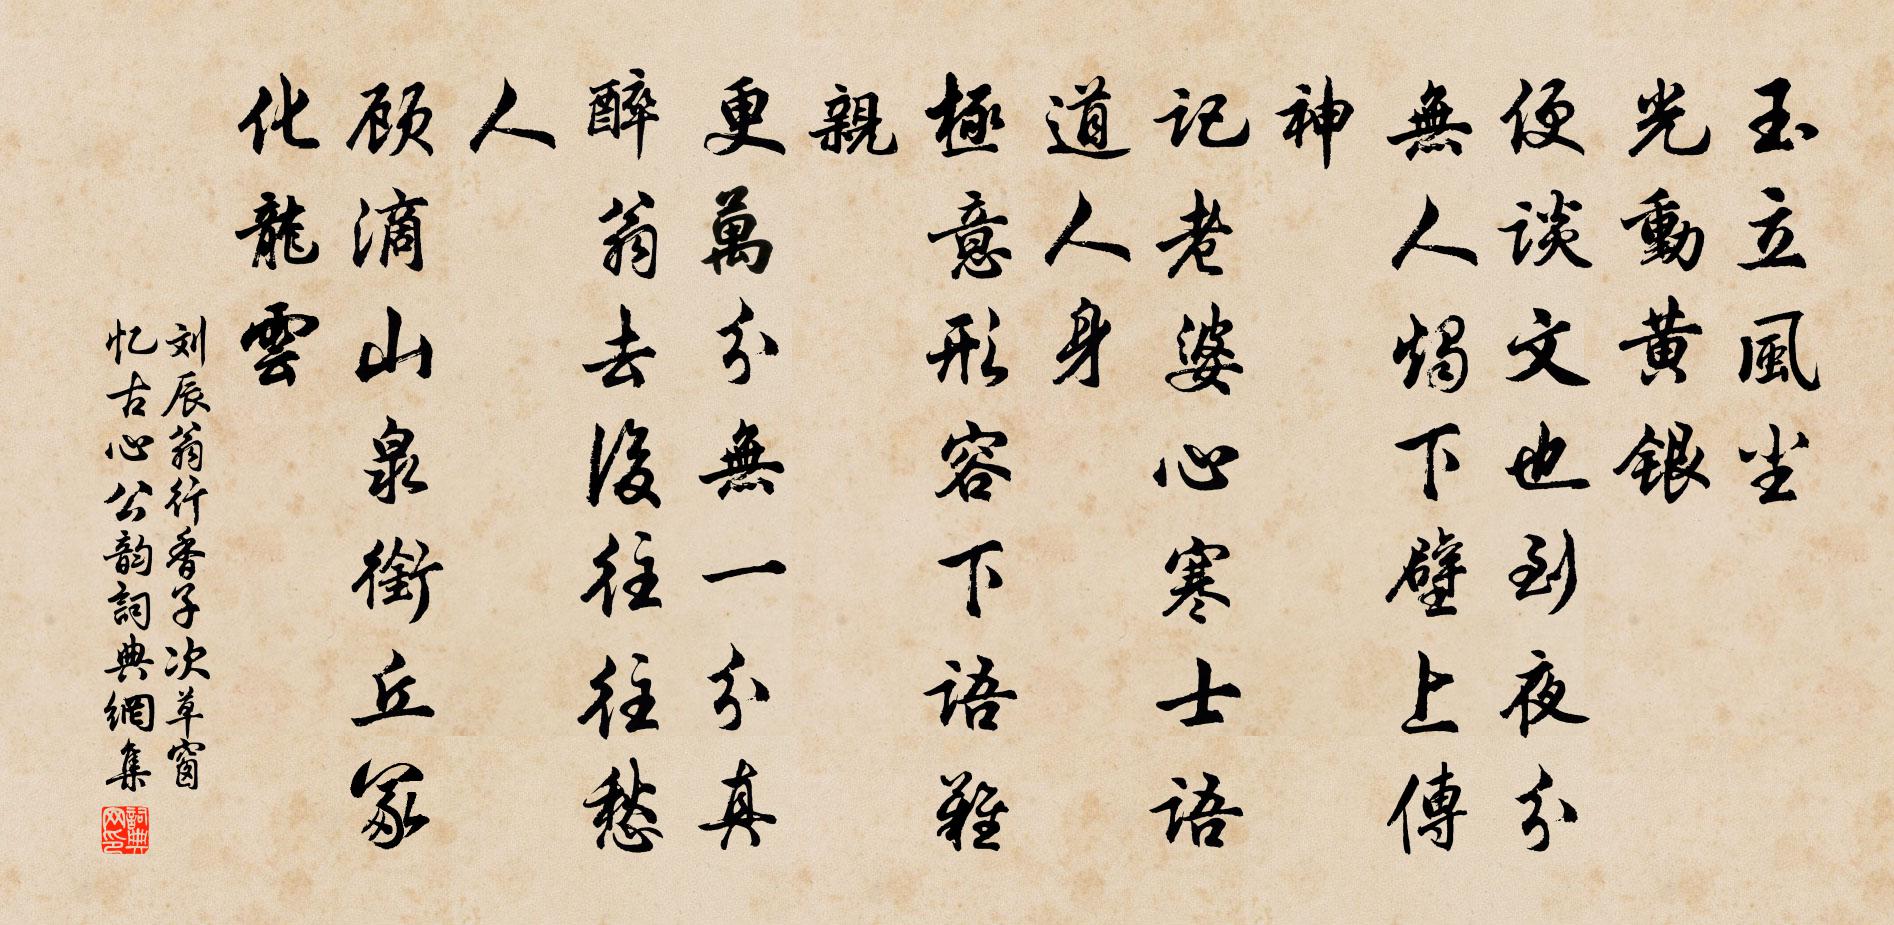 玉立風塵
光動黄銀
便谈文也到夜分
無人燭下壁上傳
神
记老婆心寒士语
道人身
極意形容下语難
親
更萬分無一分真
醉翁去後往往愁
人
顾滴山泉銜丘冢
化龍雲
刘辰翁行香子次草窗
忆古心公韵詞典網集
詞典
网印